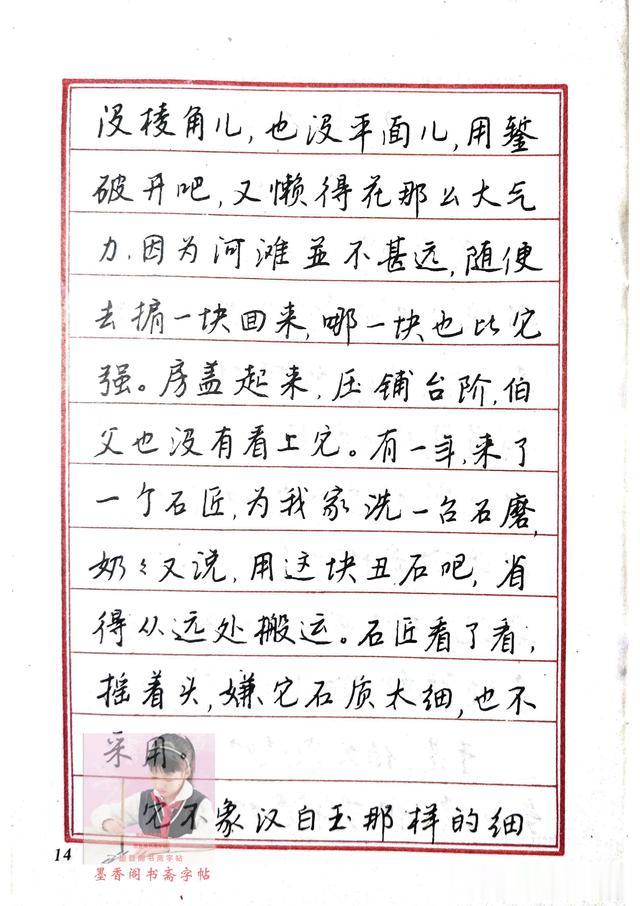 没棱角儿,也没平面儿,用錾
破开吧,又懒得花那么大气
力,因为河滩並不甚远,随便
去掮一块回来,哪一块也比它
强。房盖起来,压铺台阶,伯
父也没有看上它。有一年,来了
一个石匠,为我家洗一台石磨,
奶々又说,用这块丑石吧,省
得从远处搬运。石匠看了看,
摇着头,嫌它石质太细,也不
采用。
它不象汉白玉那样的细
14
墨香阁书斋字帖
墨香阁书斋字帖